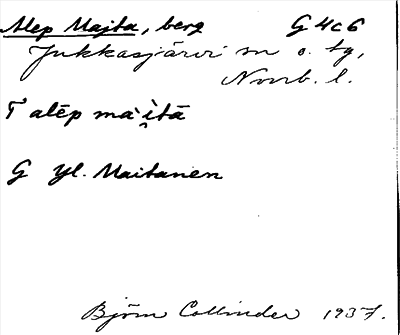 Alep Majta, berg G 4c6
Jukkasjärvi sn o. tg,
Norrb. l.
T alēp ma`i̯tā
G Yl. Maitanen
Björn Collinder 1937.